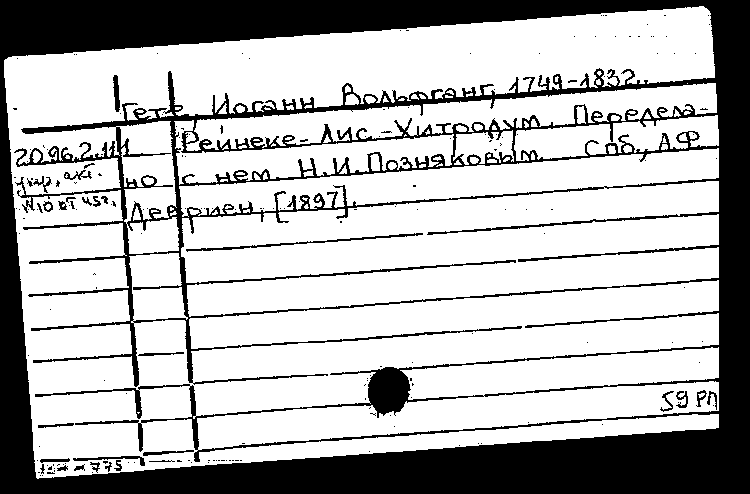 Гете, Иоганн Вольфганг, 1749-1832.
20.96.2.111 Рейнеке-Лис-Хитродум. Передела-
акт. но с нем. Н.И.Позняковым. Спб., А.Ф.
Девриен, [1897].
59 РП